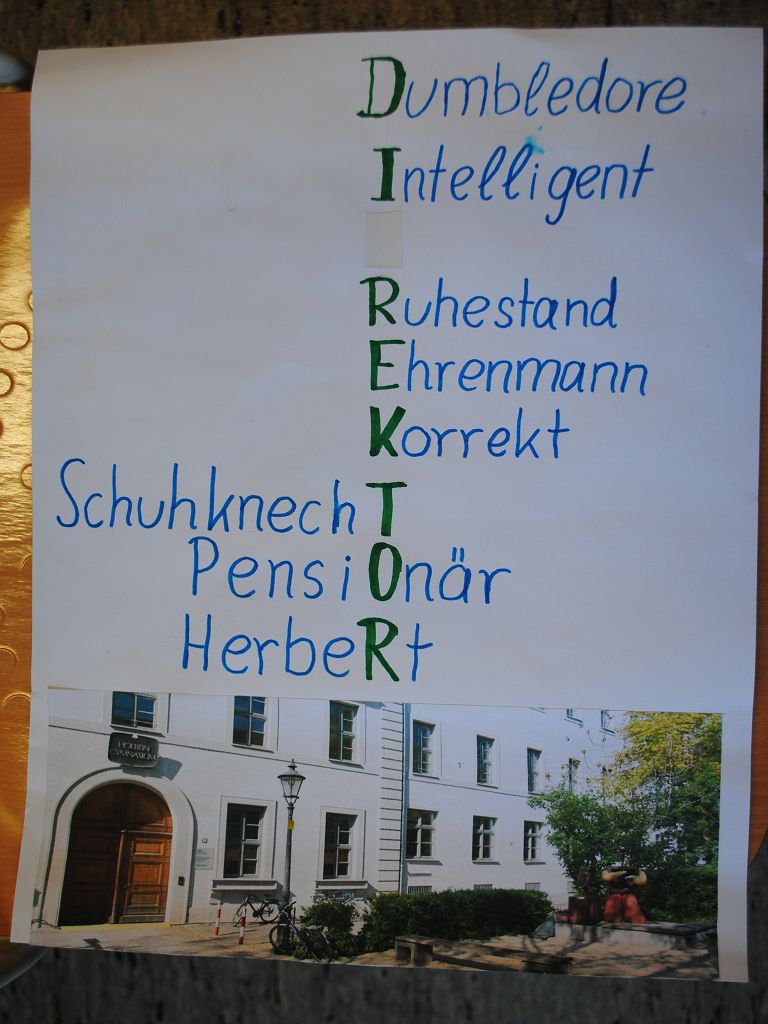 Dumbledore
Intelligent
Ruhestand
Ehrenmann
Korrekt
SchuhknechT
PensiOnär
HerbeRt
HOLBEIN
GYMNASIUM